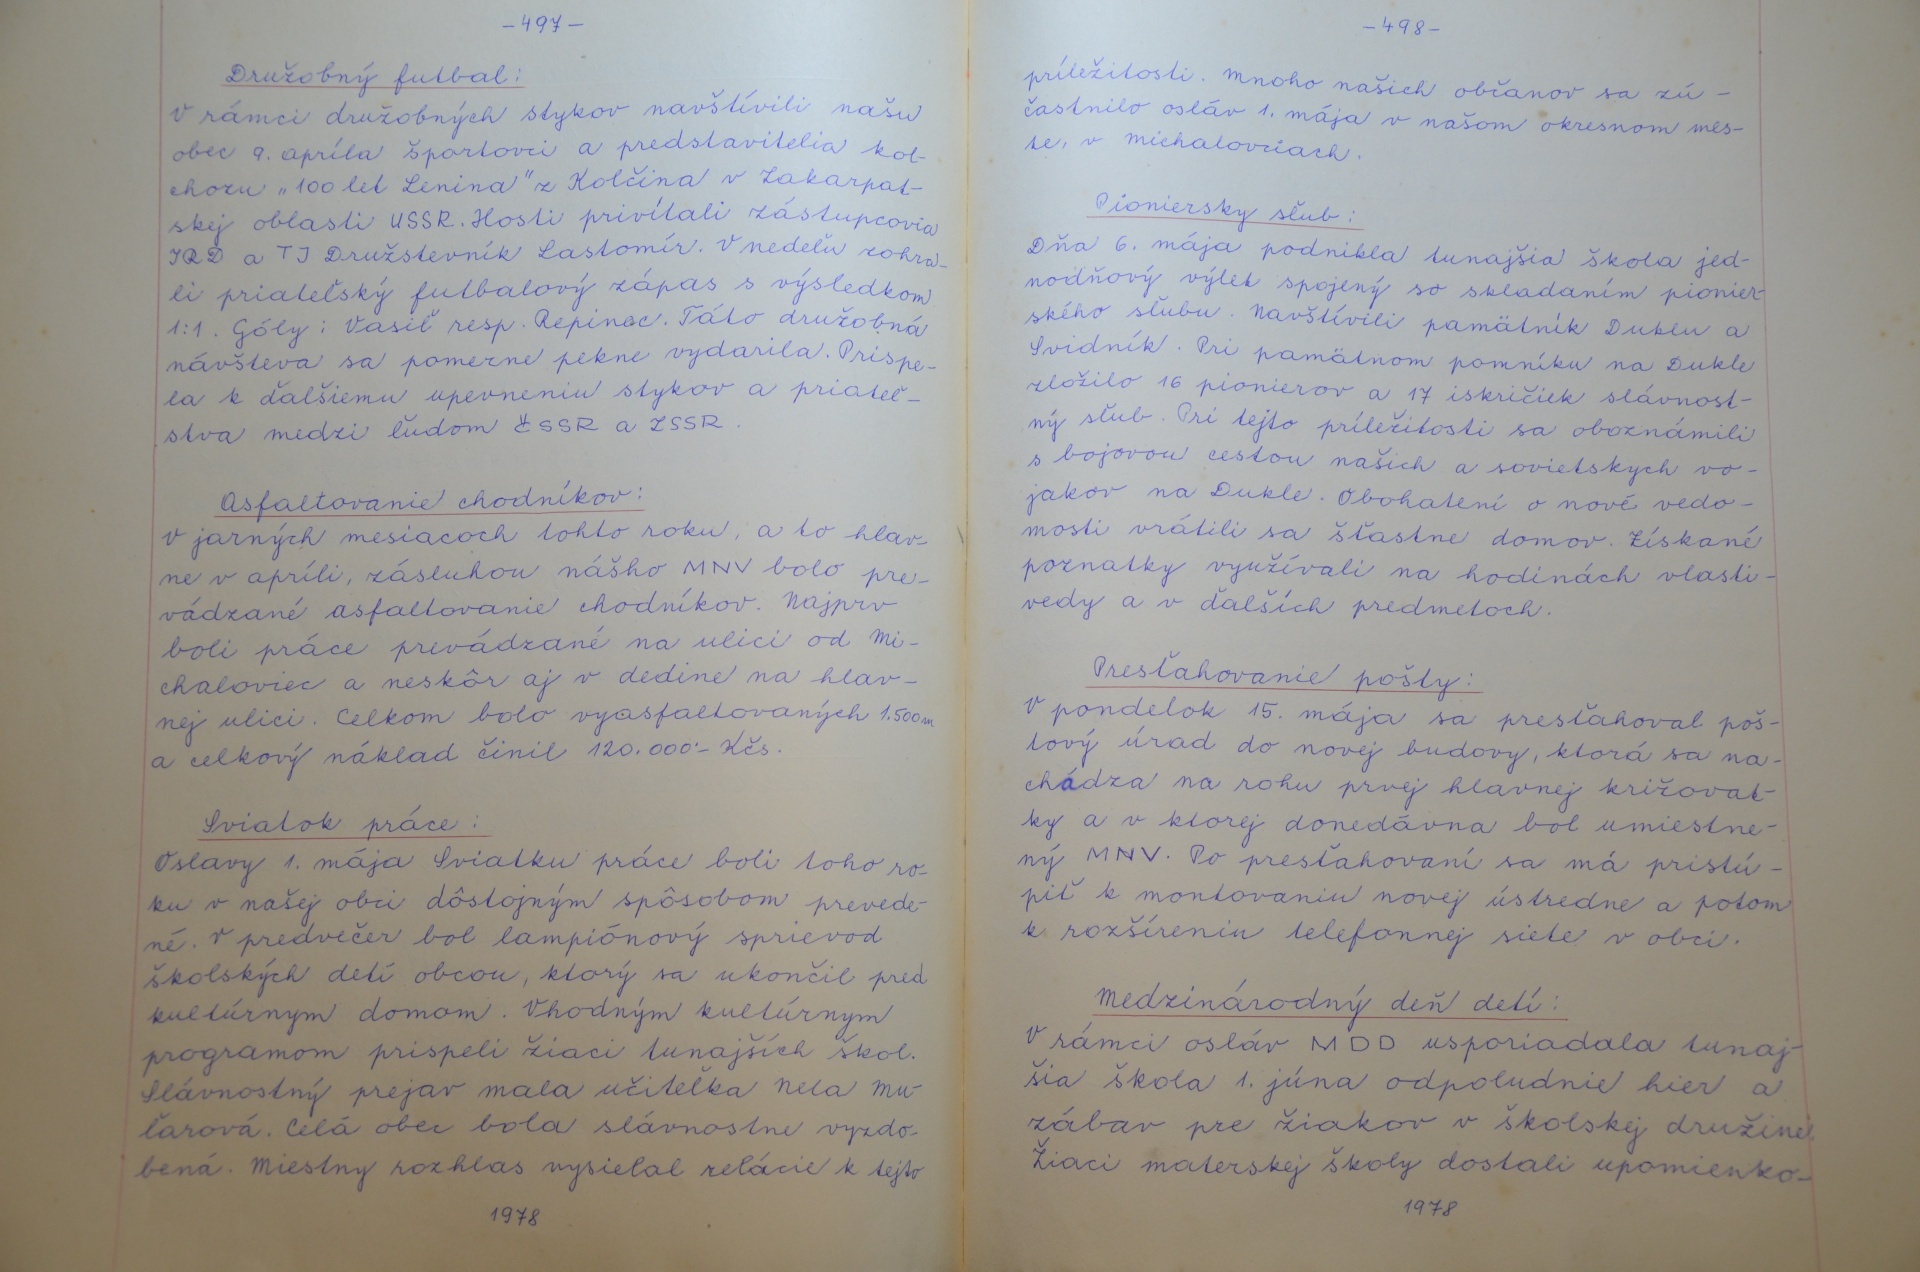 -497-
Družobný futbal:
V rámci družobných stykov navštívili našu
obec 9. apríla športovci a predstavitelia kol-
chozu „100 let Lenina" z Kolčina v Zakarpat-
skej oblasti USSR. Hosti privítali zástupcovia
JRD a TJ Družstevník Lastomír. V nedeľu zohra-
li priateľský futbalový zápas s výsledkom
1:1. Góly: Vasiľ resp. Repinec. Táto družobná
návšteva sa pomerne pekne vydarila. Prispe-
la k ďalšiemu upevneniu stykov a priateľ-
stva medzi ľudom ČSSR a ZSSR.
Asfaltovanie chodníkov:
V jarných mesiacoch tohto roku, a to hlav-
ne v apríli, zásluhou nášho MNV bolo pre-
vádzané asfaltovanie chodníkov. Najprv
boli práce prevádzané na ulici od Mi-
chaloviec a neskôr aj v dedine na hlav-
nej ulici. Celkom bolo vyasfaltovaných 1.500 m
a celkový náklad činil 120.000.- Kčs.
Sviatok práce:
Oslavy 1. mája Sviatku práce boli toho ro-
ku v našej obci dôstojným spôsobom prevede-
né. V predvečer bol lampiónový sprievod
školských detí obcou, ktorý sa ukončil pred
kultúrnym domom. Vhodným kultúrnym
programom prispeli žiaci tunajších škôl.
Slávnostný prejav mala učiteľka Nela Mu-
ľarová. Celá obec bola slávnostne vyzdo-
bená. Miestny rozhlas vysielal relácie k tejto
1978
-498-
príležitosti. Mnoho našich občanov sa zú-
častnilo osláv 1. mája v našom okresnom mes-
te, v Michalovciach.
Pioniersky sľub:
Dňa 6. mája podnikla tunajšia škola jed-
nodňový výlet spojený so skladaním pionier-
ského sľubu. Navštívili pamätník Duklu a
Svidník. Pri pamätnom pomníku na Dukle
zložilo 16 pionierov a 17 iskričiek slávnost-
ný sľub. Pri tejto príležitosti sa oboznámili
s bojovou cestou našich a sovietskych vo-
jakov na Dukle. Obohatení o nové vedo-
mosti vrátili sa šťastne domov. Získané
poznatky využívali na hodinách vlasti-
vedy a v ďalších predmetoch.
Presťahovanie pošty:
V pondelok 15. mája sa presťahoval poš-
tový úrad do novej budovy, ktorá sa na-
chádza na rohu prvej hlavnej križovat-
ky a v ktorej donedávna bol umiestne-
ný MNV. Po presťahovaní sa má pristú-
piť k montovaniu novej ústredne a potom
k rozšíreniu telefonnej siete v obci.
Medzinárodný deň detí:
V rámci osláv MDD usporiadala tunaj-
šia škola 1. júna odpoludnie hier a
zábav pre žiakov v školskej družine.
Žiaci materskej školy dostali upomienko-
1978